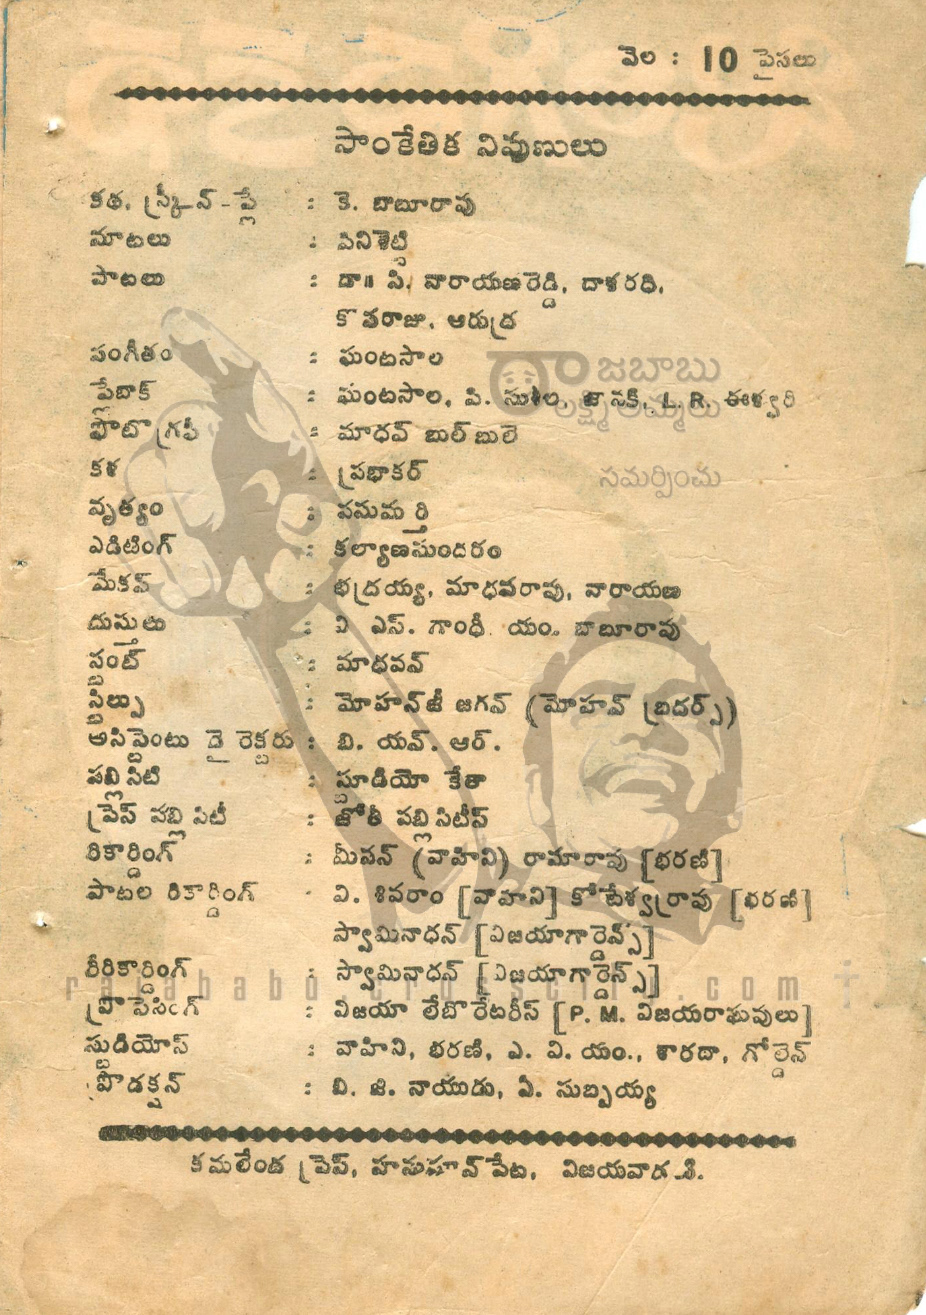 వెల : 10 పైసలు
సాంకేతిక నిపుణులు
కథ, స్క్రీన్-ప్లే : కె. బాబూరావు
మాటలు : పినిశెట్టి
పాటలు : డా॥ సి. నారాయణరెడ్డి, దాశరథి,
కొసరాజు, ఆరుద్ర
సంగీతం : ఘంటసాల
ప్లేబాక్ : ఘంటసాల, పి. సుశీల, జానకి, L. R. ఈశ్వరి
ఫొటోగ్రఫీ : మాధవ్ బుల్ బులె
కళ : ప్రభాకర్
నృత్యం : పసుమర్తి
ఎడిటింగ్ : కల్యాణసుందరం
మేకప్ : భద్రయ్య, మాధవరావు, నారాయణ
దుస్తులు : వి ఎస్. గాంధీ యం. బాబూరావు
స్టంట్ : మాధవన్
స్టిల్సు : మోహన్‌జీ జగన్ (మోహన్ బ్రదర్స్)
అసిస్టెంటు డైరెక్టరు : బి. యన్. ఆర్.
పబ్లిసిటి : స్టూడియో కేతా
ప్రెస్ పబ్లిసిటీ : జోతీ పబ్లిసిటీస్
రికార్డింగ్ : మీనన్ (వాహిని) రామారావు [భరణి]
పాటల రికార్డింగ్ : వి. శివరాం [వాహిని] కోటేశ్వరరావు [భరణి]
స్వామినాధన్ [విజయాగార్డెన్స్]
రీరికార్డింగ్ : స్వామినాధన్ [విజయాగార్డెన్స్]
ప్రాసెసింగ్ : విజయా లేబొరేటరీస్ [P. M. విజయరాఘవులు]
స్టుడియోస్ : వాహిని, భరణి, ఎ. వి. యం., శారదా, గోల్డెన్
ప్రొడక్షన్ : వి. జి. నాయుడు, ఏ. సుబ్బయ్య
కమలేంద్ర ప్రెస్, హనుమాన్ పేట, విజయవాడ-2.
రాజబాబు
లక్ష్మీఅమ్మలు
సమర్పించు